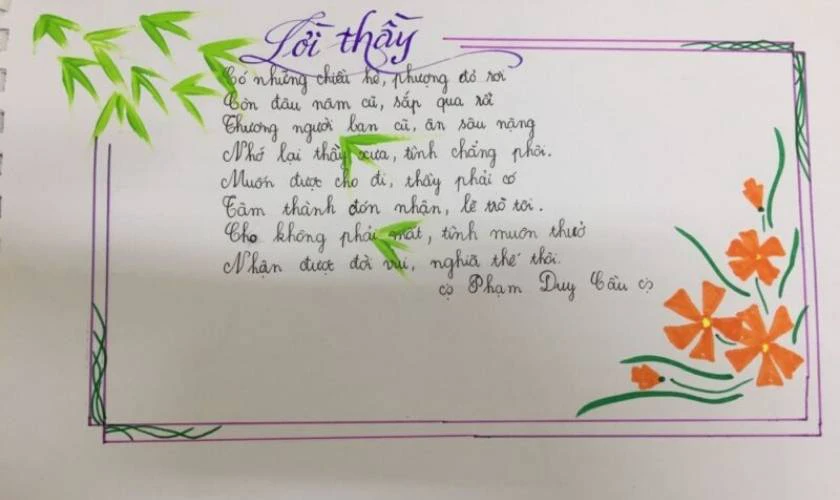 Lời thầy
Có những chiều hè, phượng đỏ rơi
Còn đâu năm cũ, sắp qua rồi
Thương người bạn cũ, ân sâu nặng
Nhớ lại thầy xưa, tình chẳng phôi.
Muốn được cho đi, thầy phải có
Tâm thành đón nhận, lẽ trò tôi.
Cho không phải mất, tình muôn thuở
Nhận được đời vui, nghĩa thế thôi.
Phạm Duy Cầu